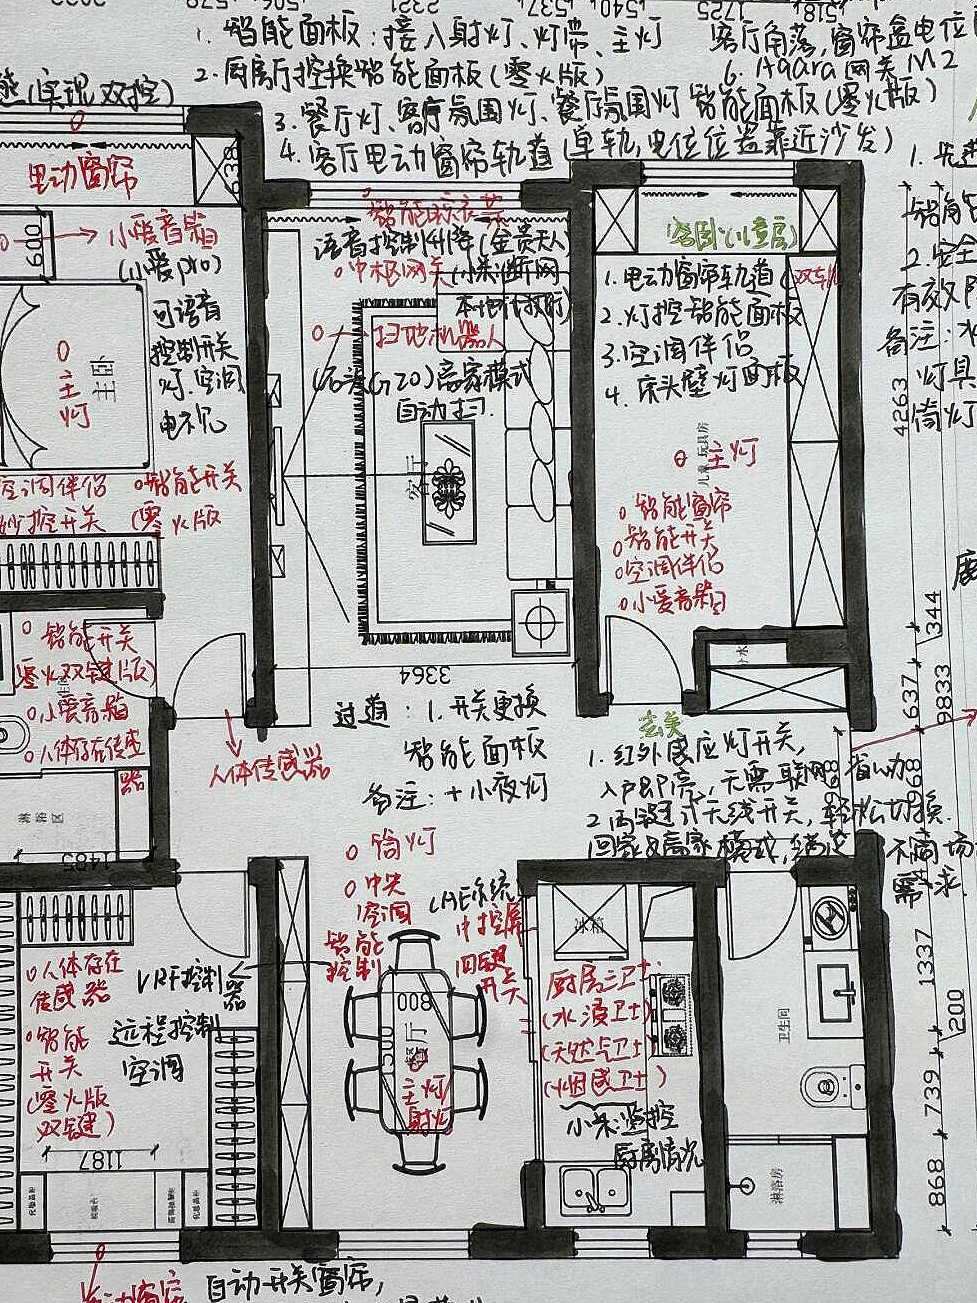 1. 智能面板：接入射灯、灯带、主灯
2. 厨房厅控换智能面板（零火版）
（实现双控）
3. 餐厅灯、客厅氛围灯、餐厅氛围灯 智能面板（零火版）
4. 客厅电动窗帘轨道（单轨，电位位置靠近沙发）
客厅角落，窗帘盒电位
6. Aqara网关M2
电动窗帘
600
小爱音箱
（小爱pro）
可语音
控制开关
灯.空调
电视
主灯
主卧
空调伴侣
智能开关
（零火版
智能晾衣架
语音控制升降（金贵夫人
中枢网关（小米断网
本地化救场）
扫地机器人
（石头G20）离家模式
自动扫.
客厅
3364
客卧（儿童房）
1. 电动窗帘轨道（双轨
2. 灯控智能面板
3. 空调伴侣
4. 床头壁灯面板
主灯
智能窗帘
智能开关
空调伴侣
小爱音箱
2. 安全
有效
备注：水
灯具
筒灯
4263
344
637
9833
968
1337
200
739
868
智能开关
（零火双键版）
小爱音箱
人体存在传感
器
淋浴区
1485
人体传感器
过道：1. 开关更换
智能面板
备注：+小夜灯
玄关
1. 红外感应灯开关，
入户即亮，无需联网
2. 两键式无线开关，轻松切换
回家&离家模式，满足不同场
需求
筒灯
中央
空调
智能
控制
中控屏
四键
开关
冰箱
厨房三卫士：
（水浸卫士）
（天然气卫士）
（烟感卫士）
小米监控
厨房情况
人体存在
传感器
智能
开关
（零火版
双键）
VRF控制
器
远程控制
空调
1187
800
1500
餐厅
主灯
射灯
卫生间
淋浴房
自动开关窗帘，